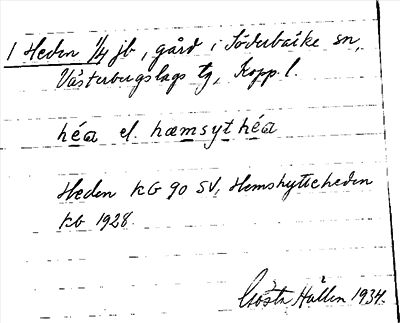 1 Heden 1/4 jb, gård i Söderbärke sn,
Västerbergslags tg, Kopp. l.
héa el. hæmsythéa
Heden KG 90 SV, Hemshytteheden
kb 1928.
Gösta Hallén 1934.